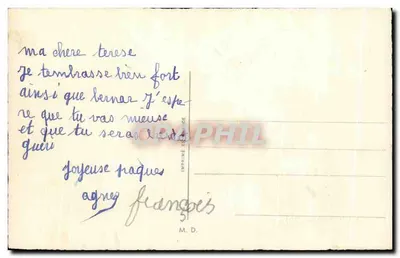 ma chere terese
je tembrasse bien fort
ainsi que bernar J'espe
re que tu vas mieuse
et que tu sera
gueri
Joyeuse paques
agnes
francois
M. D.